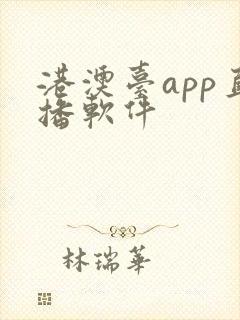 港澳臺app直
播軟件
林瑞華